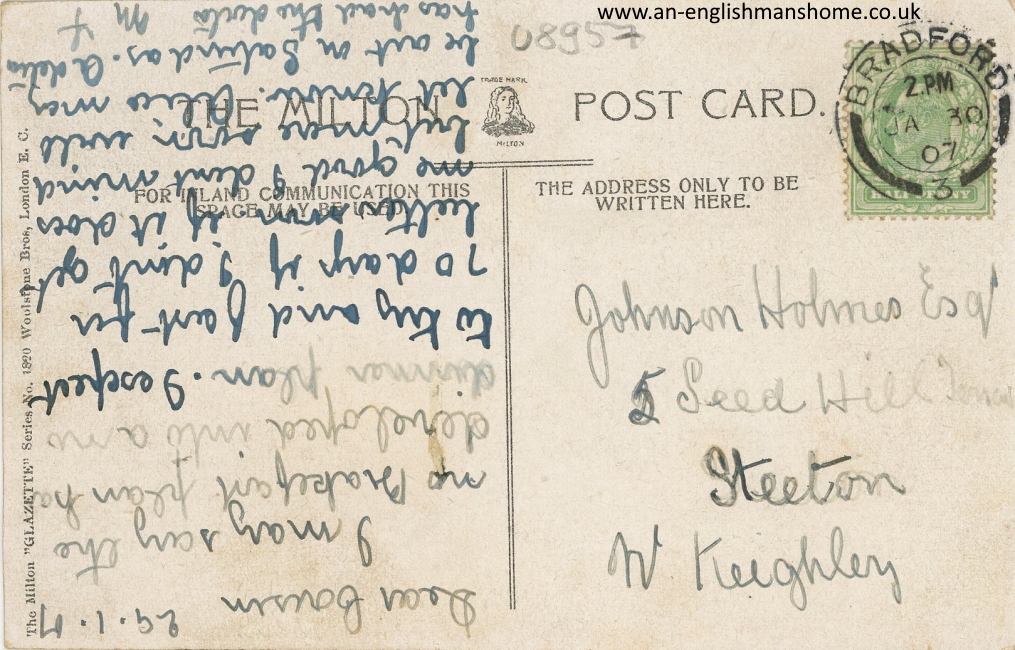 www.an-englishmanshome.co.uk
08957
THE MILTON
TRADE MARK
MILTON
POST CARD.
BRADFORD
2. PM
JA 30
07
3
HALFPENNY
FOR INLAND COMMUNICATION THIS
SPACE MAY BE USED
THE ADDRESS ONLY TO BE
WRITTEN HERE.
29.1.07
Dear Cousin
I may say the
no Brakefast plan ha
developed into a no
dinner plan. I expect
to try and fast for
10 days if I dont get
better soon if it does
me good I dont mind
but mere will
let know.
be out on Saturdas. Adelia
has had the docter
M
Johnson Holmes Esq
5 Seed Hill
Steeton
Nr Keighley
The Milton "GLAZETTE" Series No. 1820 Woolstone Bros, London E. C.